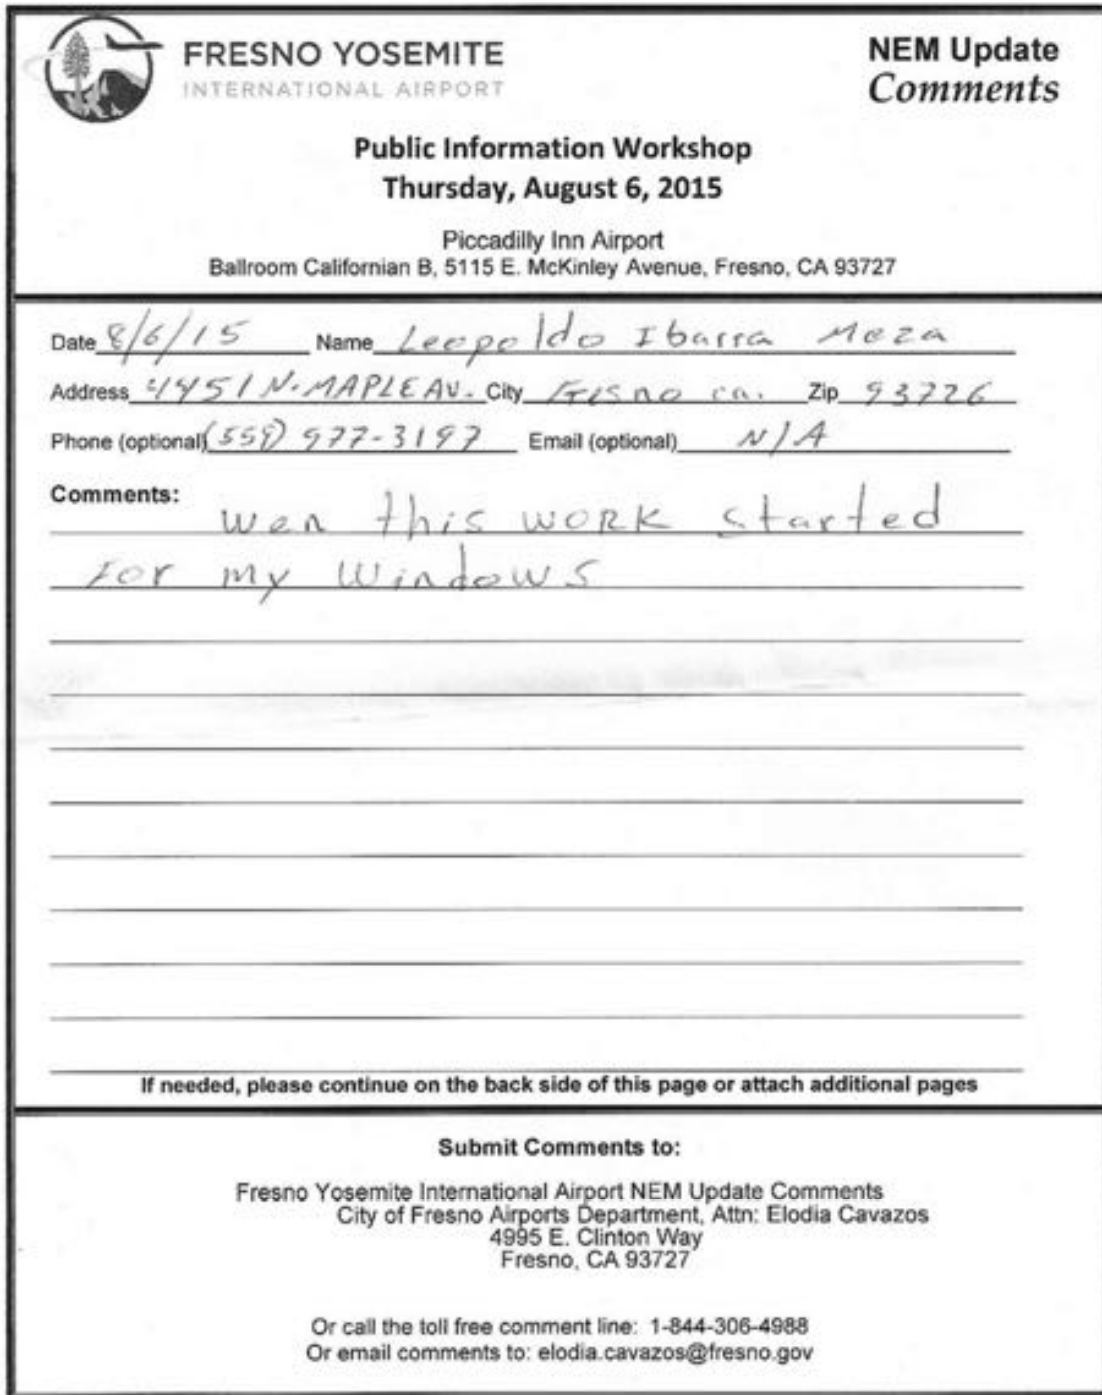 FRESNO YOSEMITE
INTERNATIONAL AIRPORT
NEM Update
Comments
Public Information Workshop
Thursday, August 6, 2015
Piccadilly Inn Airport
Ballroom Californian B, 5115 E. McKinley Avenue, Fresno, CA 93727
Date 8/6/15 Name Leopoldo Ibarra Meza
Address 4451 N. MAPLE AV. City Fresno ca. Zip 93726
Phone (optional) (559) 977-3197 Email (optional) N/A
Comments:
wen this WORK started
For my Windows
If needed, please continue on the back side of this page or attach additional pages
Submit Comments to:
Fresno Yosemite International Airport NEM Update Comments
City of Fresno Airports Department, Attn: Elodia Cavazos
4995 E. Clinton Way
Fresno, CA 93727
Or call the toll free comment line: 1-844-306-4988
Or email comments to: elodia.cavazos@fresno.gov